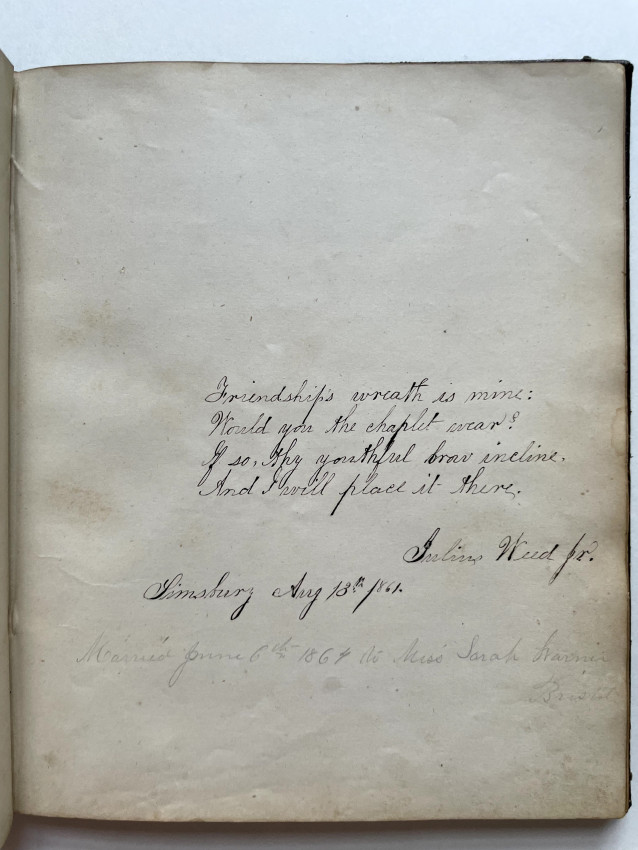 Friendship's wreath is mine:
Would you the chaplet wear?
If so, thy youthful brow incline,
And I will place it there.
Julius Weed Jr.
Simsbury Aug 13th 1861.
Married June 6th 1864 to Miss Sarah Warner
Bristol